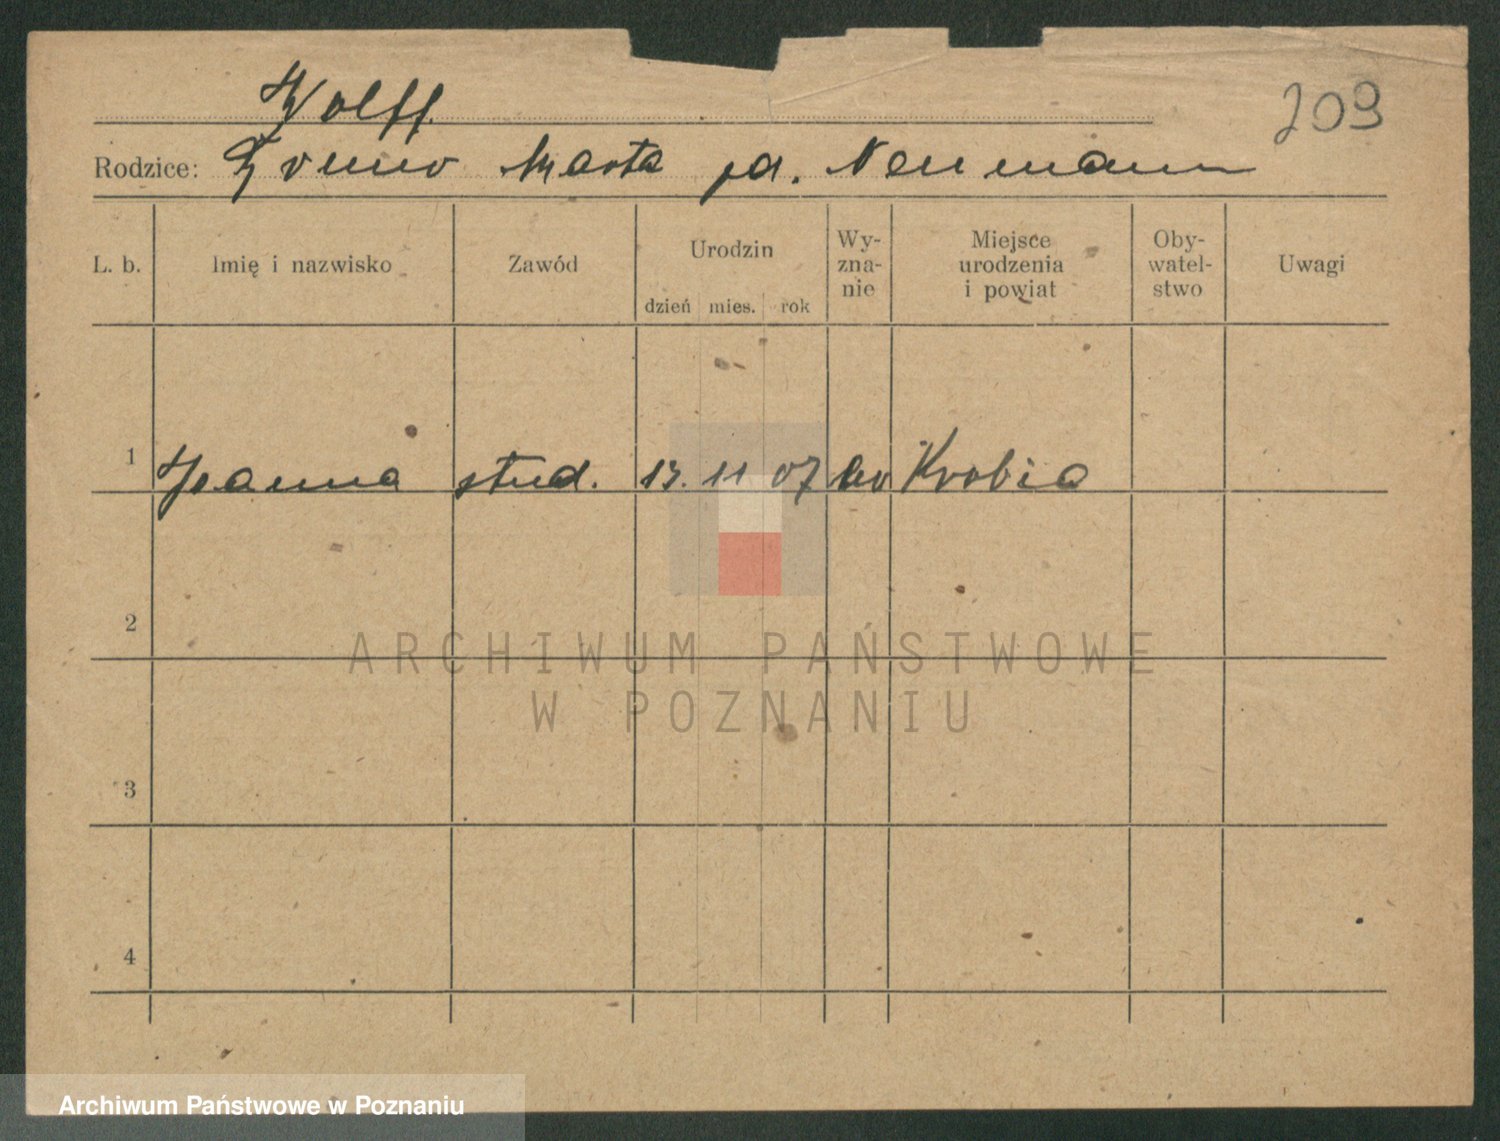 Wolff.
209
Rodzice: Bruno Marta pd. Neumann
L. b. Imię i nazwisko Zawód Urodzin dzień mies. rok Wy-zna-nie Miejsce urodzenia i powiat Oby-watel-stwo Uwagi
1 stud. 13. 11 07 Krobia
2
ARCHIWUM PAŃSTWOWE
W POZNANIU
3
4
Archiwum Państwowe w Poznaniu